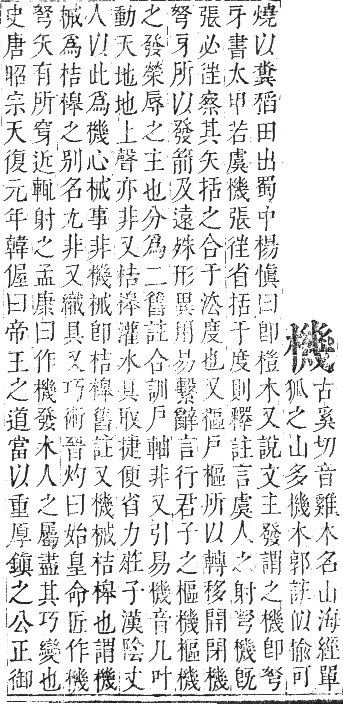 機
古奚切音雞木名山海經單
狐之山多機木郭註似榆可
燒以糞稻田出蜀中楊慎曰卽榿木又說文主發謂之機卽弩
牙書太甲若虞機張徃省括于度則釋註言虞人之射弩機旣
張必徃察其矢括之合于法度也又樞戶樞所以轉移開閉機
弩牙所以發箭及遠殊形異用易繫辭言行君子之樞機樞機
之發榮辱之主也分爲二舊註合訓戶軸非又引易機音几叶
動天地地上聲亦非又桔橰灌水具取捷便省力莊子漢陰丈
人以此爲機心械事非機械卽桔橰舊註又機械桔橰也謂機
械爲桔橰之別名尤非又織具又巧術晉灼曰始皇命匠作機
弩矢有所穿近輒射之孟康曰作機發木人之屬盡其巧變也
史唐昭宗天復元年韓偓曰帝王之道當以重厚鎮之公正御